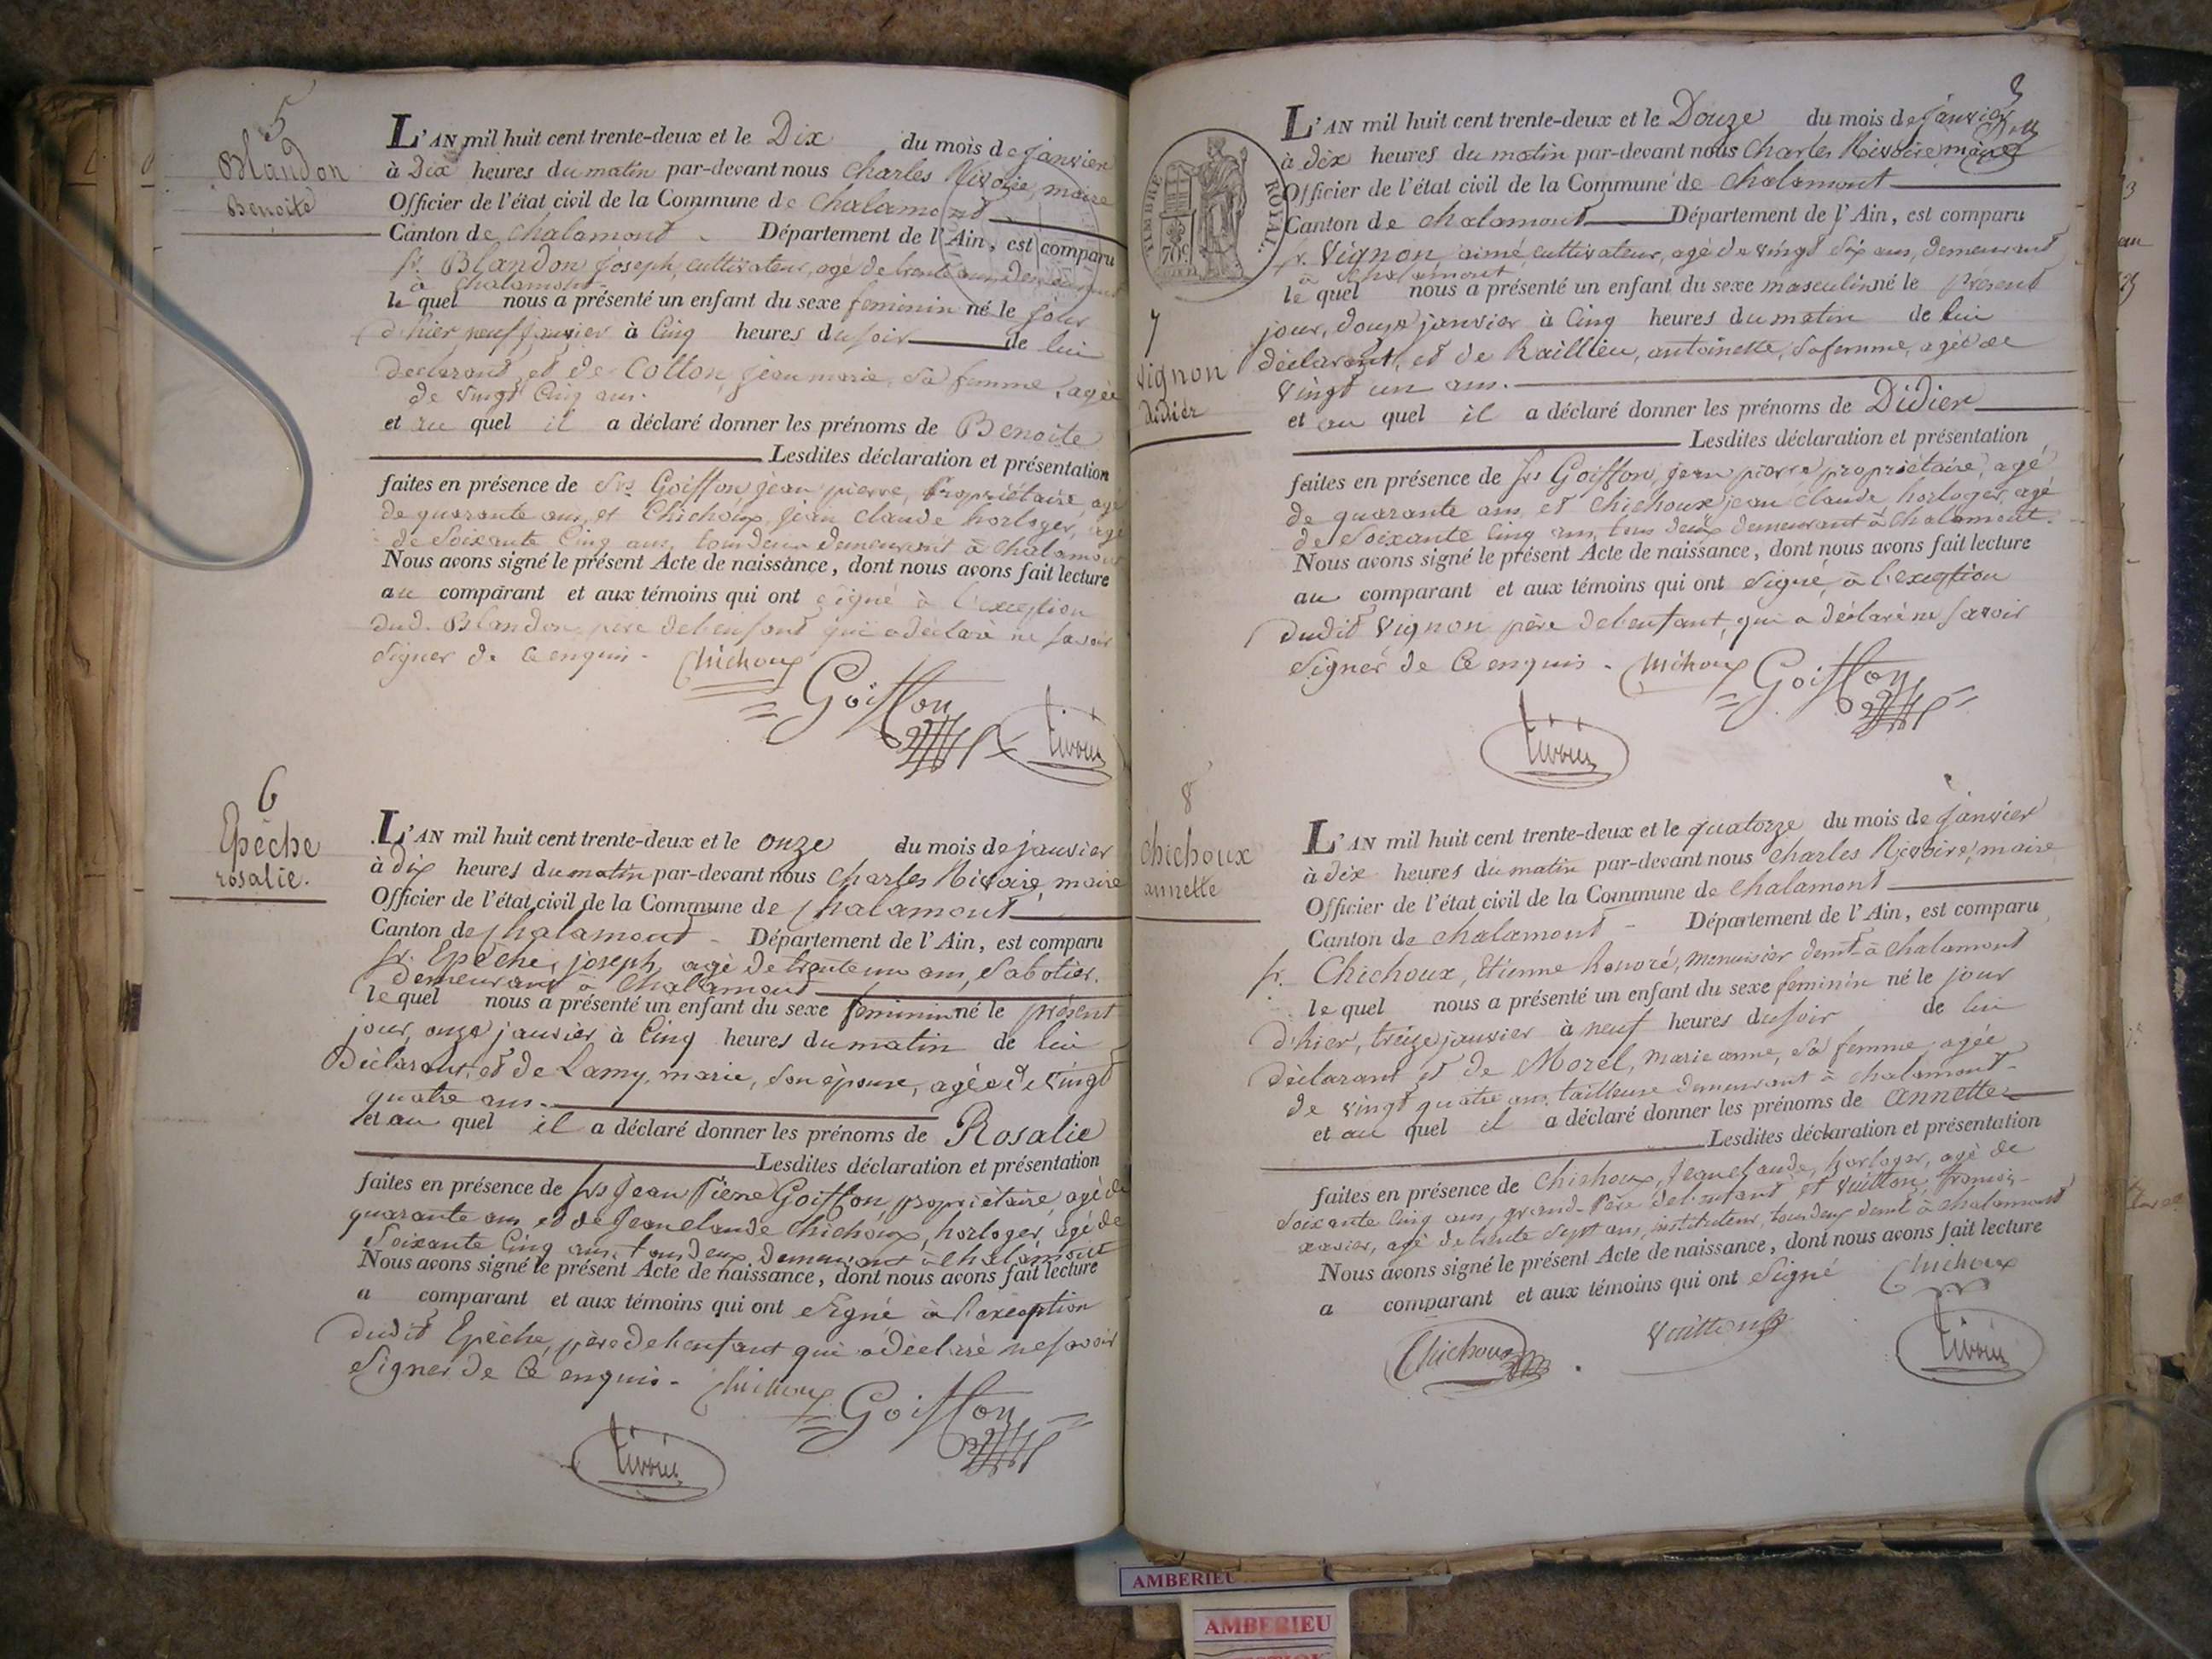 5
Blandon
Benoite
L'AN mil huit cent trente-deux et le Dix du mois de janvier
à Dix heures du matin par-devant nous Charles Rivoire, maire
Officier de l'état civil de la Commune de Chalamont
Canton de Chalamont Département de l'Ain, est comparu
sr. Blandon Joseph, cultivateur, agé de trente ans, demeurant
à Chalamont.
le quel nous a présenté un enfant du sexe feminin né le jour
d'hier neuf janvier à Cinq heures du soir de lui
declarant, et de Collon, jeanmarie, sa femme, agée
de vingt Cinq ans.
et au quel il a déclaré donner les prénoms de Benoite
Lesdites déclaration et présentation
faites en présence de Srs Goiffon jean pierre, propriétaire, agé
de quarante ans, et Chichoux, jean claude horloger, agé
de Soixante Cinq ans, tous deux demeurant à Chalamont
Nous avons signé le présent Acte de naissance, dont nous avons fait lecture
au comparant et aux témoins qui ont signé à l'exception
dud. Blandon, pere de l'enfant qui a déclaré ne savoir
signer de Ce enquis. Chichoux
Goiffon
Rivoire
6
Epêche
rosalie.
L'AN mil huit cent trente-deux et le onze du mois de janvier
à dix heures du matin par-devant nous Charles Rivoire, maire
Officier de l'état civil de la Commune de Chalamont
Canton de Chalamont Département de l'Ain, est comparu
sr. Epêche, joseph, agé de trente un ans, Sabotier.
demeurant à Chalamont
le quel nous a présenté un enfant du sexe feminin né le présent
jour, onze janvier à Cinq heures du matin de lui
Déclarant, et de Lamy, marie, son épouse, agée de vingt
quatre ans.
et au quel il a déclaré donner les prénoms de Rosalie
Lesdites déclaration et présentation
faites en présence de srs Jean Pierre Goiffon, propriétaire, agé de
quarante ans, et de Jean claude Chichoux, horloger, agé de
Soixante Cinq ans, tous deux demeurant à Chalamont
Nous avons signé le présent Acte de naissance, dont nous avons fait lecture
a comparant et aux témoins qui ont signé à l'exception
dudit Epêche, père de l'enfant qui a déclaré ne savoir
Signer de Ce enquis. Chichoux
Goiffon
Rivoire
3
TIMBRE ROYAL
70c
7
Vignon
didier
L'AN mil huit cent trente-deux et le Douze du mois de janvier
à dix heures du matin par-devant nous Charles Rivoire maire
Officier de l'état civil de la Commune de Chalamont
Canton de Chalamont Département de l'Ain, est comparu
sr. Vignon, aimé, cultivateur, agé de vingt six ans, demeurant
à Chalamont
le quel nous a présenté un enfant du sexe masculin né le Présent
jour, douze janvier à Cinq heures du matin de lui
déclarant, et de Raillieu, antoinette, sa femme, agée de
vingt un ans.
et au quel il a déclaré donner les prénoms de Didier
Lesdites déclaration et présentation
faites en présence de srs Goiffon, jean pierre propriétaire, agé
de quarante ans, et Chichoux jean claude horloger, agé
de Soixante Cinq ans, tous deux demeurant à Chalamont.
Nous avons signé le présent Acte de naissance, dont nous avons fait lecture
au comparant et aux témoins qui ont signé, à l'exception
dudit Vignon père de l'enfant, qui a déclaré ne savoir
signer de Ce enquis. Chichoux Goiffon
Rivoire
8
Chichoux
annette
L'AN mil huit cent trente-deux et le quatorze du mois de janvier
à dix heures du matin par-devant nous Charles Rivoire, maire
Officier de l'état civil de la Commune de Chalamont
Canton de Chalamont Département de l'Ain, est comparu
sr. Chichoux, Etienne honoré, menuisier demt à Chalamont
le quel nous a présenté un enfant du sexe feminin né le jour
d'hier, treize janvier à neuf heures du soir de lui
déclarant et de Morel, marie anne, sa femme agée
de vingt quatre ans, tailleuse demeurant à Chalamont.
et au quel il a déclaré donner les prénoms de annette
Lesdites déclaration et présentation
faites en présence de Chichoux, Jean claude, horloger, agé de
Soixante Cinq ans, grand-Père de l'enfant et Vuitton, françois-
xavier, agé de trente sept ans, instituteur, tous deux demt à Chalamont
Nous avons signé le présent Acte de naissance, dont nous avons fait lecture
a comparant et aux témoins qui ont signé Chichoux
Chichoux Vuitton Rivoire
AMBERIEU
AMBERIEU